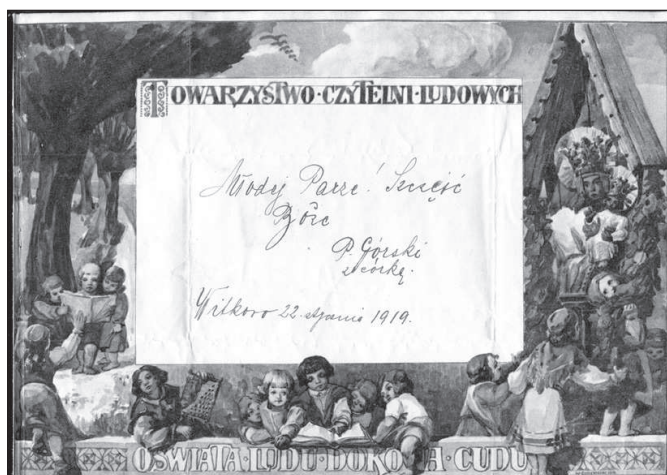 TOWARZYSTWO·CZYTELNI·LUDOWYCH
Młodej Parze! Szczęść
Boże
P. Górski
z córką.
Witkowo 22. stycznia 1919.
OŚWIATA·LUDU·DOKONA·CUDU